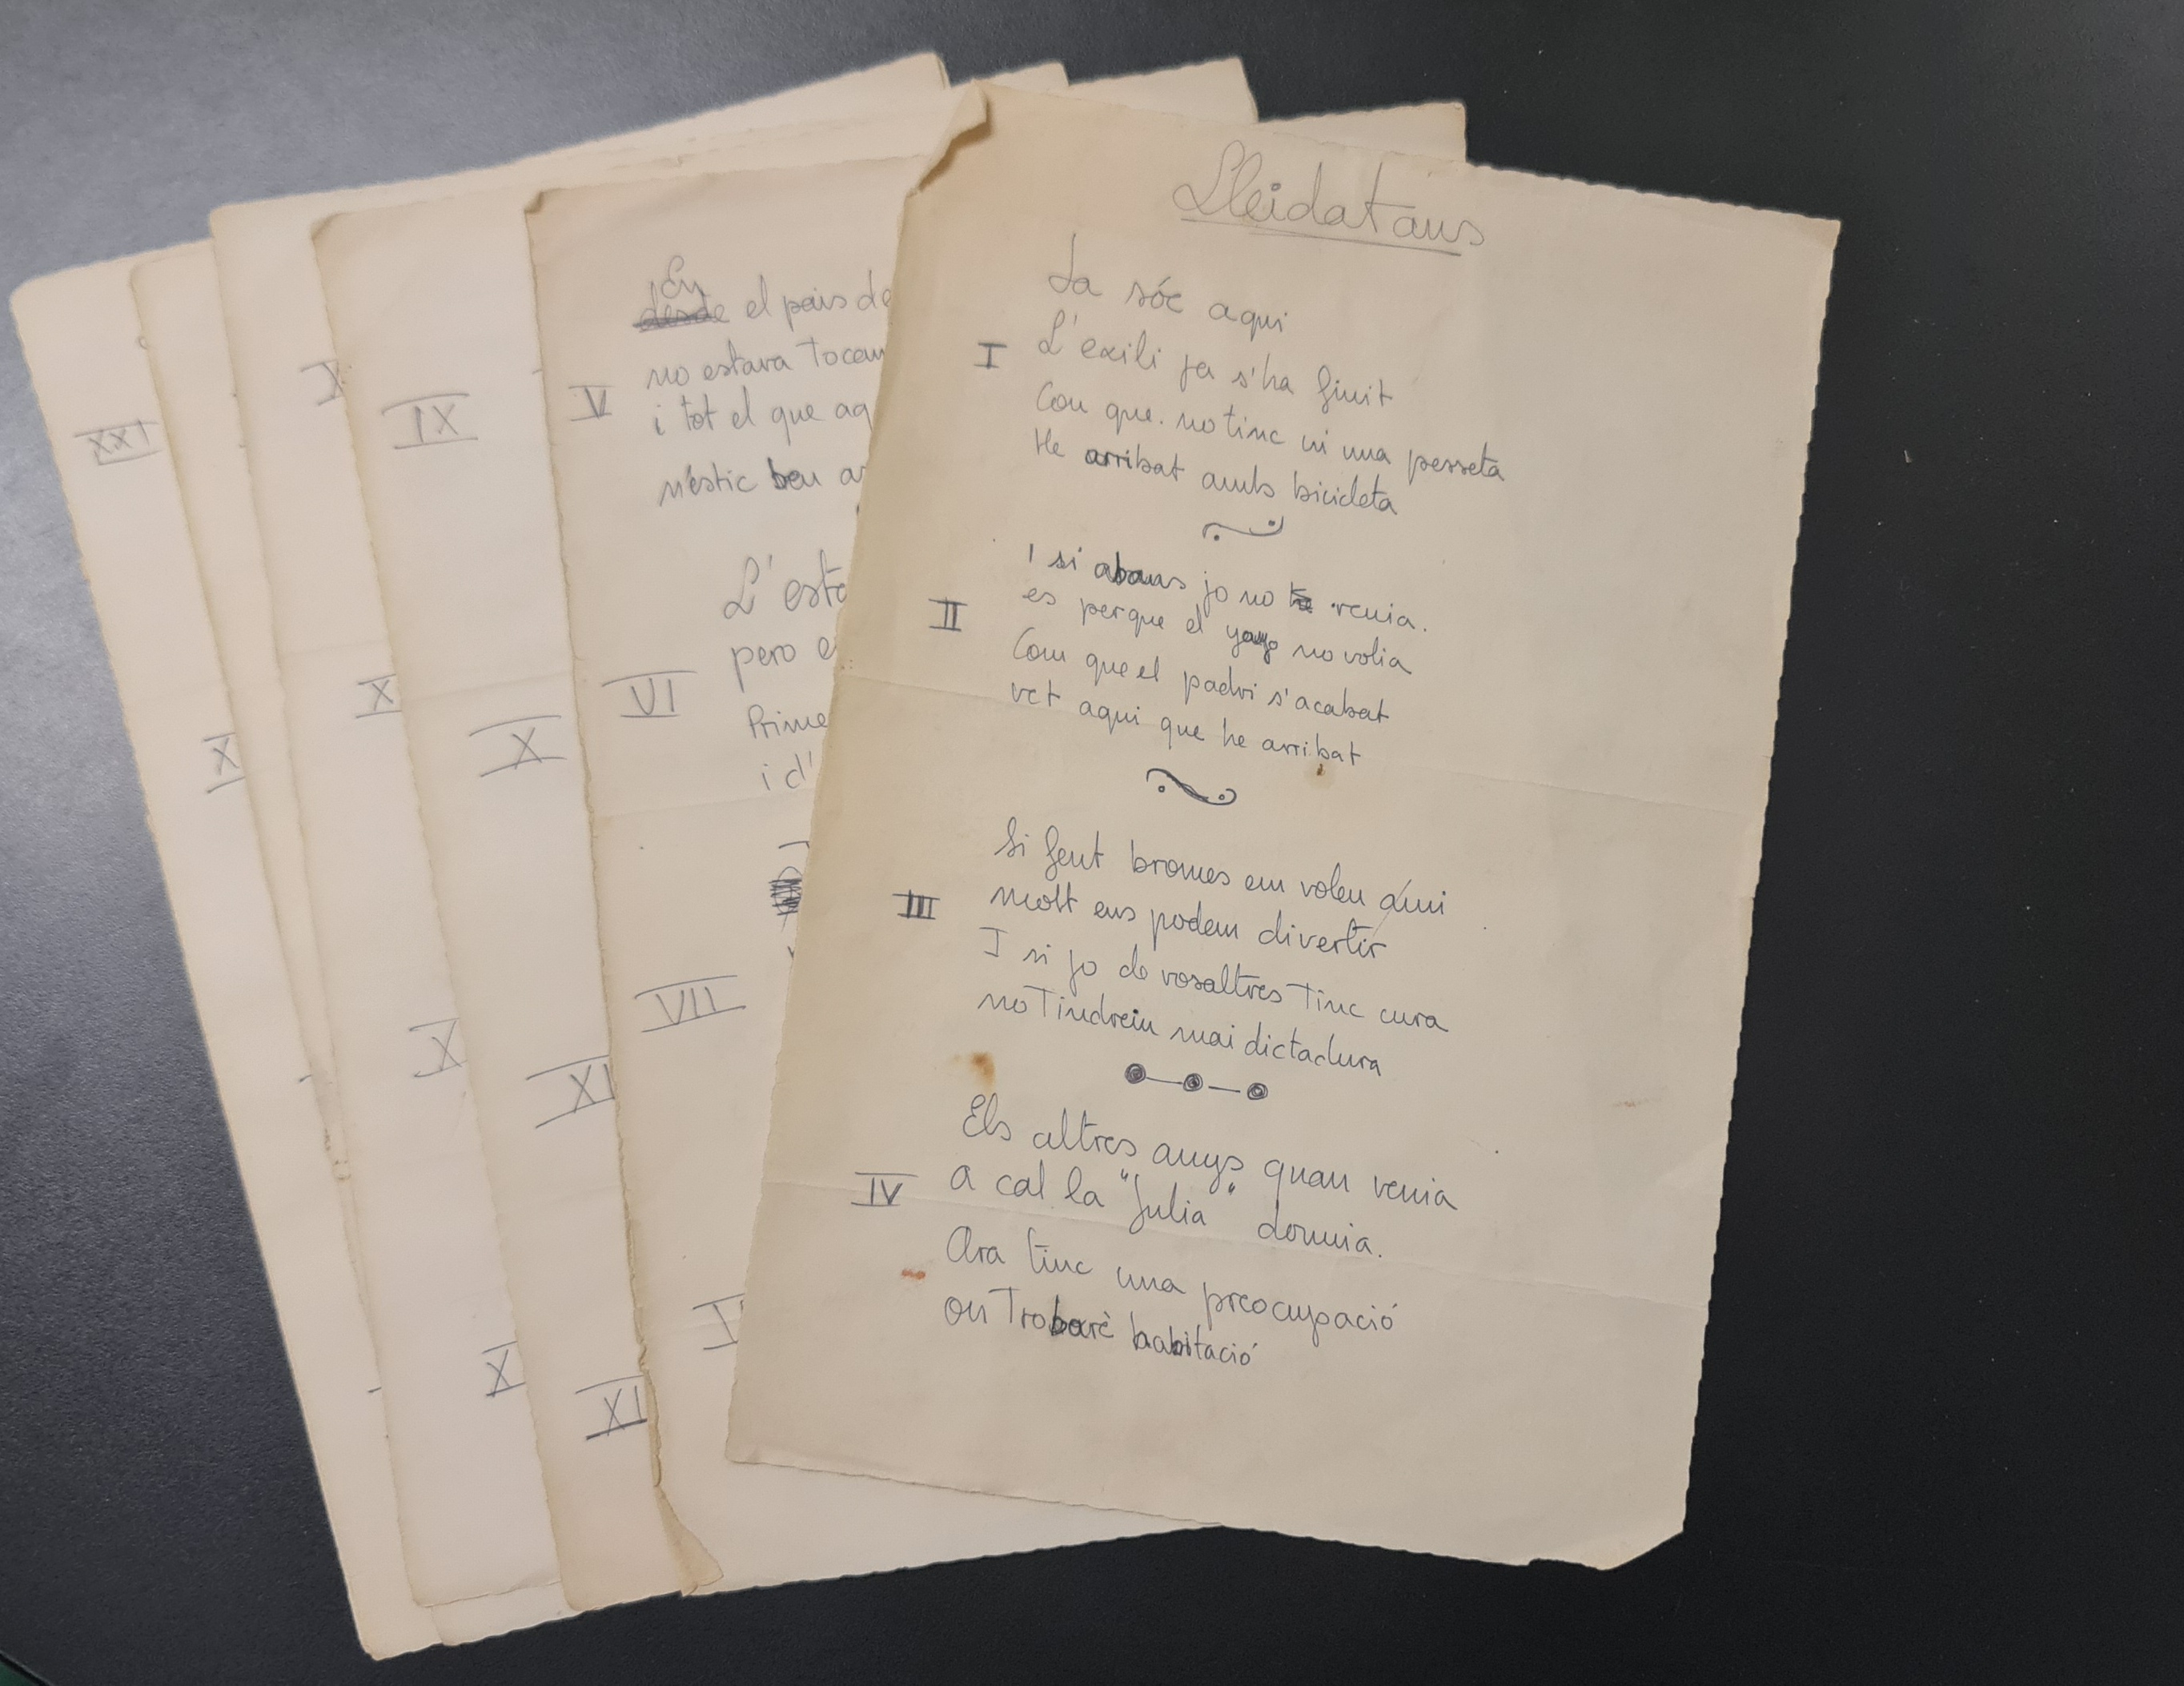 Lleidatans
Ja sóc aqui
I
L'exili ja s'ha finit
Com que no tinc ni una pesseta
He arribat amb bicicleta
I si abans jo no venia.
II
es perque el yayo no volia
Com que el padri s'acabat
vet aqui que he arribat
Si fent bromes em voleu
molt ens podem divertir
III
I si jo de vosaltres Tinc cura
no Tindreiu mai dictadura
Els altres anys quan venia
IV
a cal la "Julia" dormia.
Ara tinc una preocupació
on Trobaré habitació
En
desde el pais de
no estava Tocan
V
i tot el que aq
n'estic ben
L'esta
VI
pero e
Prime
i d'
VII
IX
X
XI
XI
X
X
X
X
X
XXI